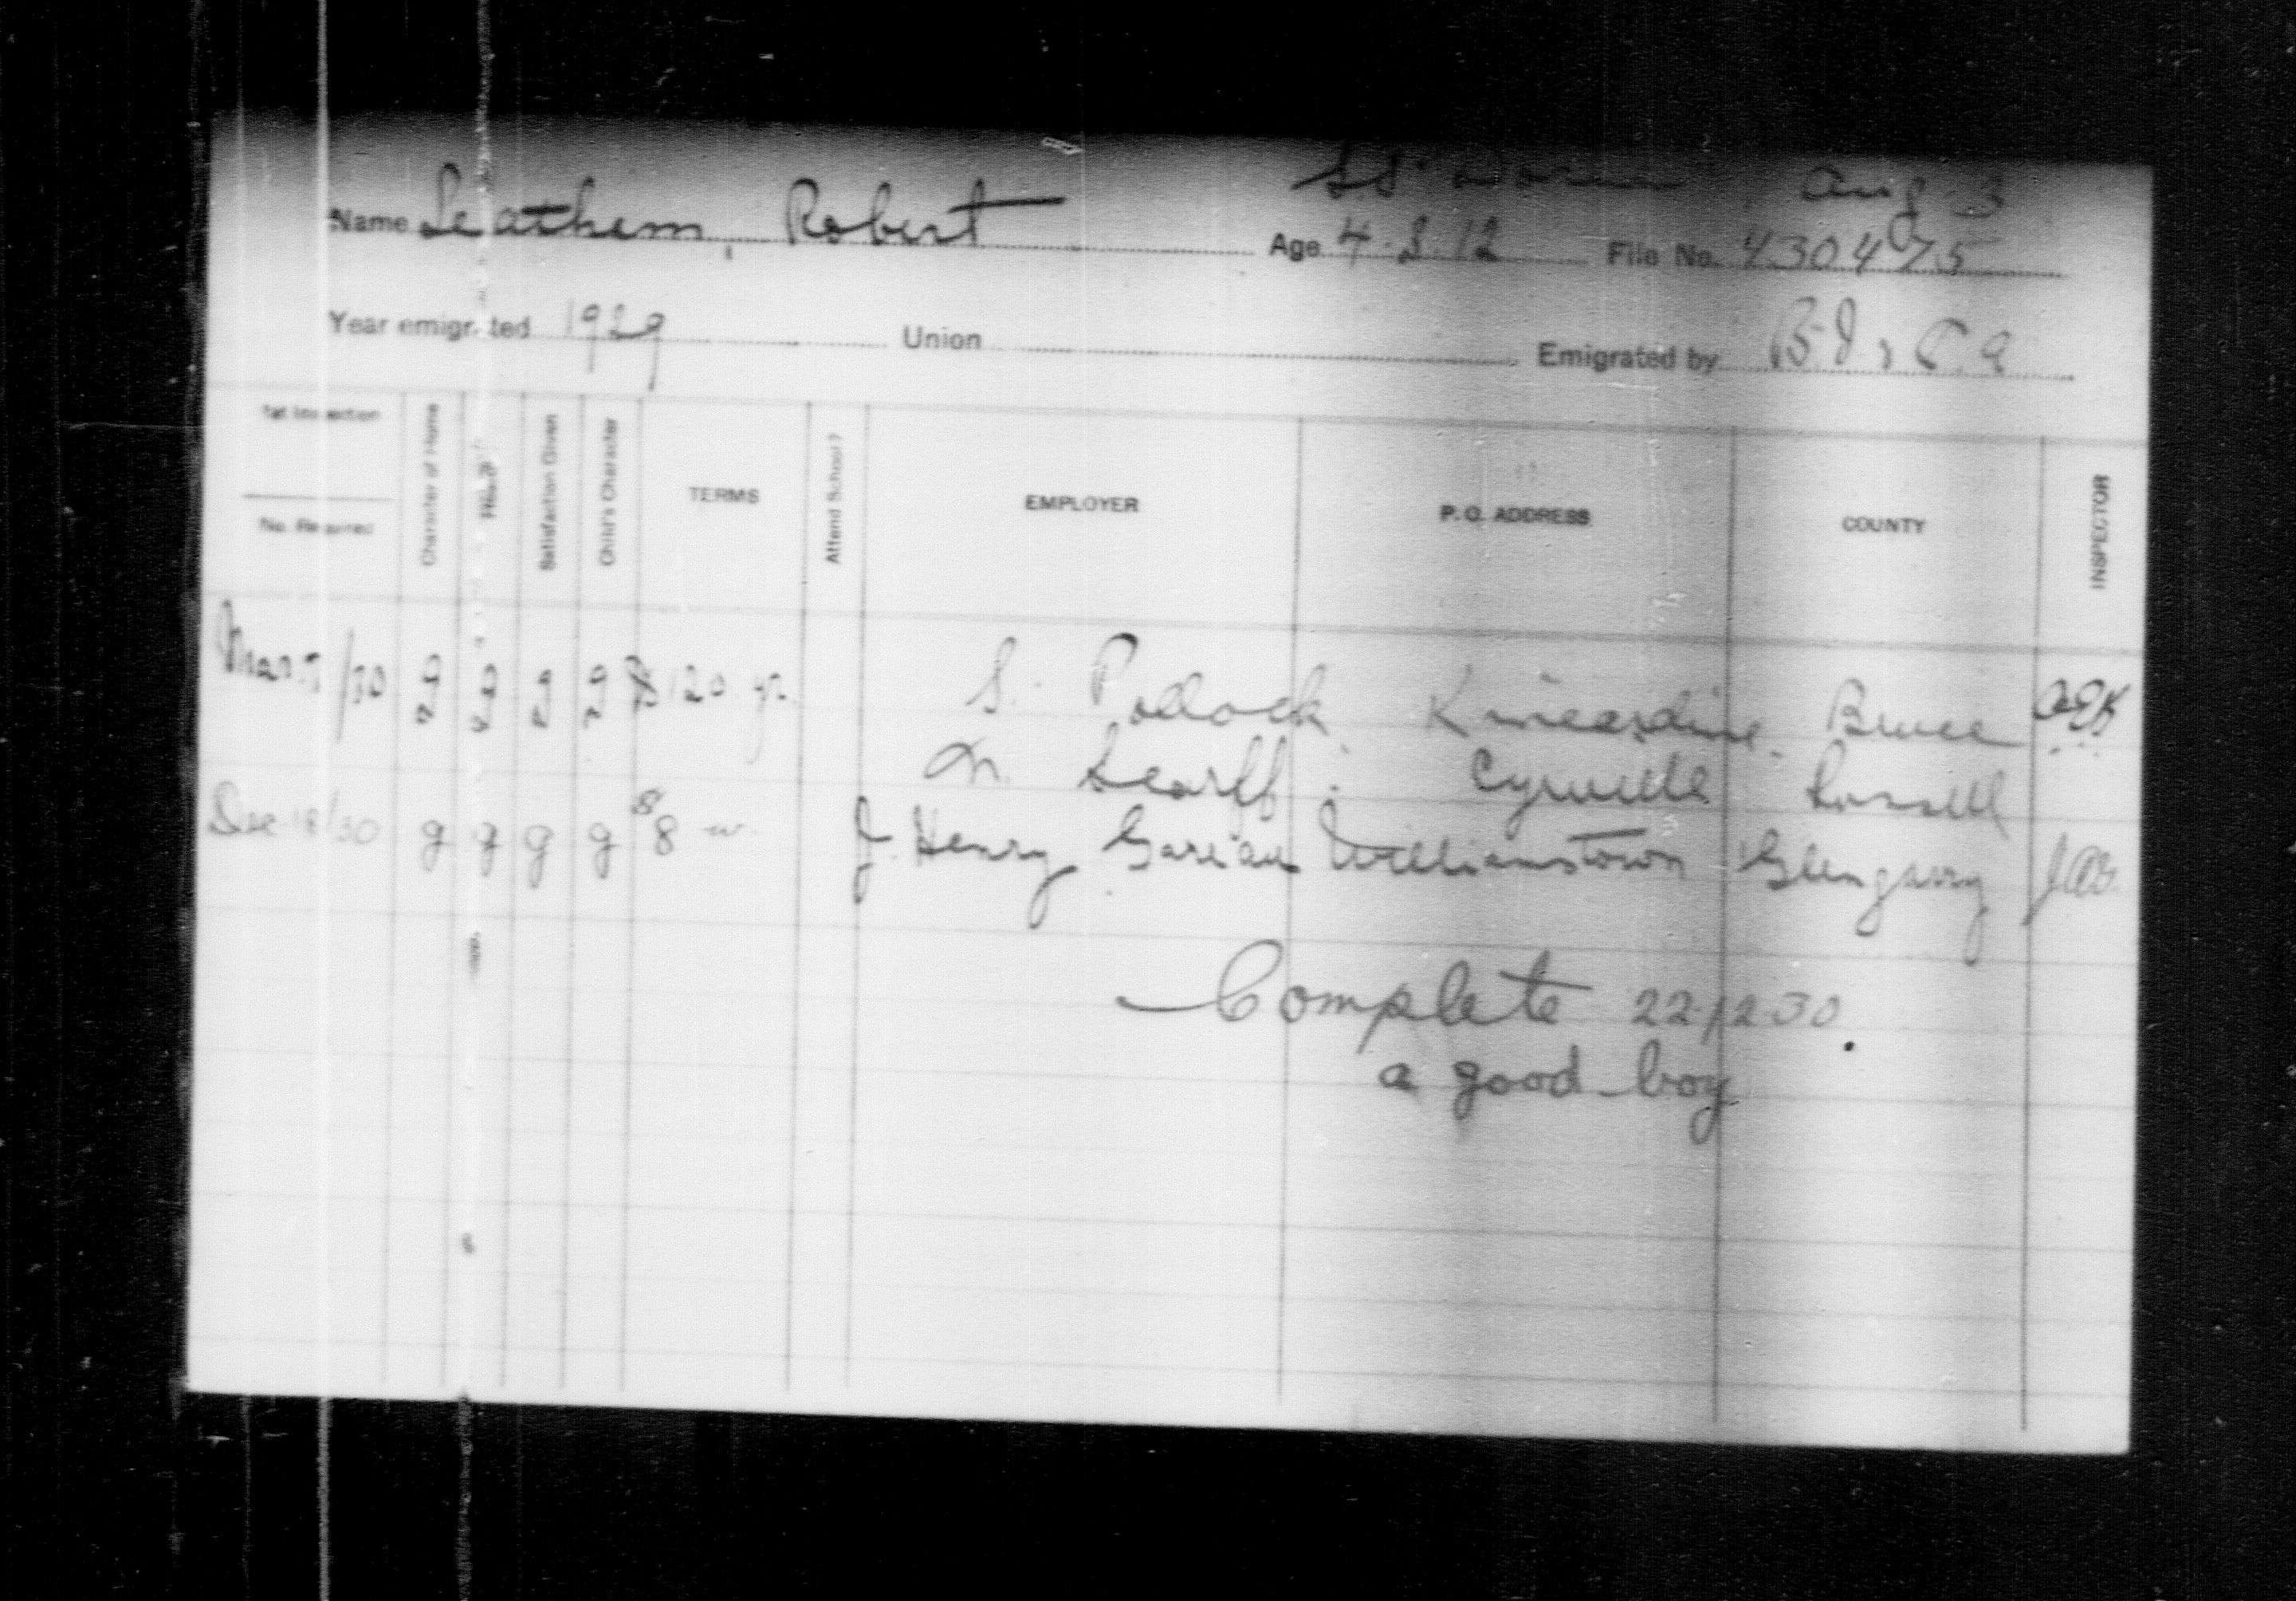 S.S. Aug 3
Name Leathem, Robert Age 4.3.12 File No. 430475
Year emigrated 1929 Union Emigrated by B.I. & C.A
1st Inspection
No. Required
Character of Home
Health
Satisfaction Given
Child's Character
TERMS
Attend School?
EMPLOYER
P. O. ADDRESS
COUNTY
INSPECTOR
Mar. /30 v g v g v g v g $120 yr. S. Pollock Kincardine. Bruce
Cyrville Russell
Dec 18/30 g g g g $8 J. Henry Williamstown Glengarry
Complete 22-12-30.
a good boy